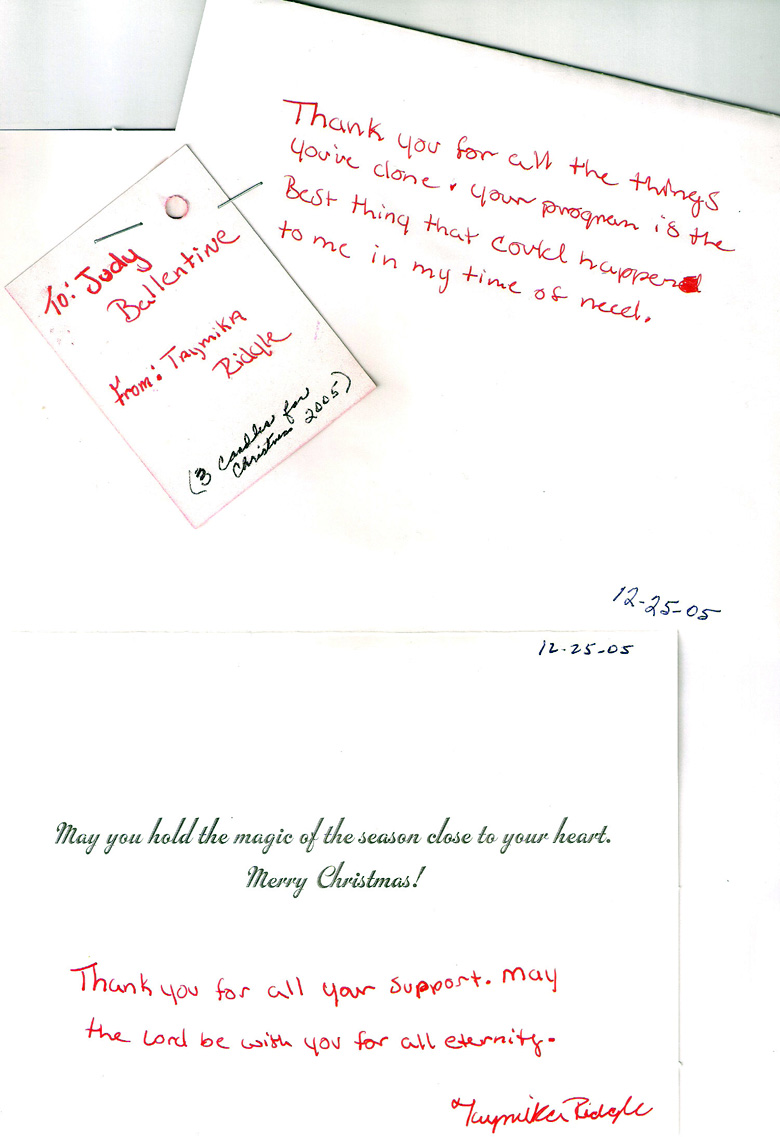 Thank you for all the things
you've done. your program is the
Best thing that could happened
to me in my time of need.
To: Judy
Ballentine
from: Taymika
Riddle
(3 candles for
Christmas 2005)
12-25-05
12-25-05
May you hold the magic of the season close to your heart.
Merry Christmas!
Thank you for all your support. May
the Lord be with you for all eternity.
Taymika Riddle